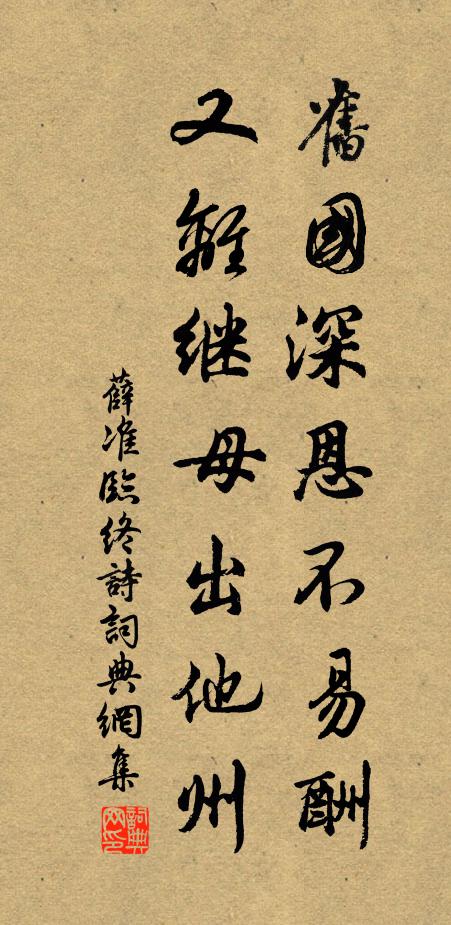 舊國深恩不易酬
又離继母出他州
薛准臨终詩詞典網集
詞典網印